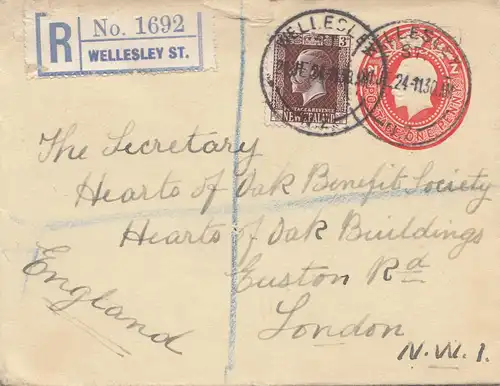 R No. 1692
WELLESLEY ST.
WELLESLEY ST
24-11.30
3D
POSTAGE & REVENUE
NEW ZEALAND
The Secretary
Hearts of Oak Benefit Society
Hearts of Oak Buildings
Euston Rd
London
N.W.1.
England